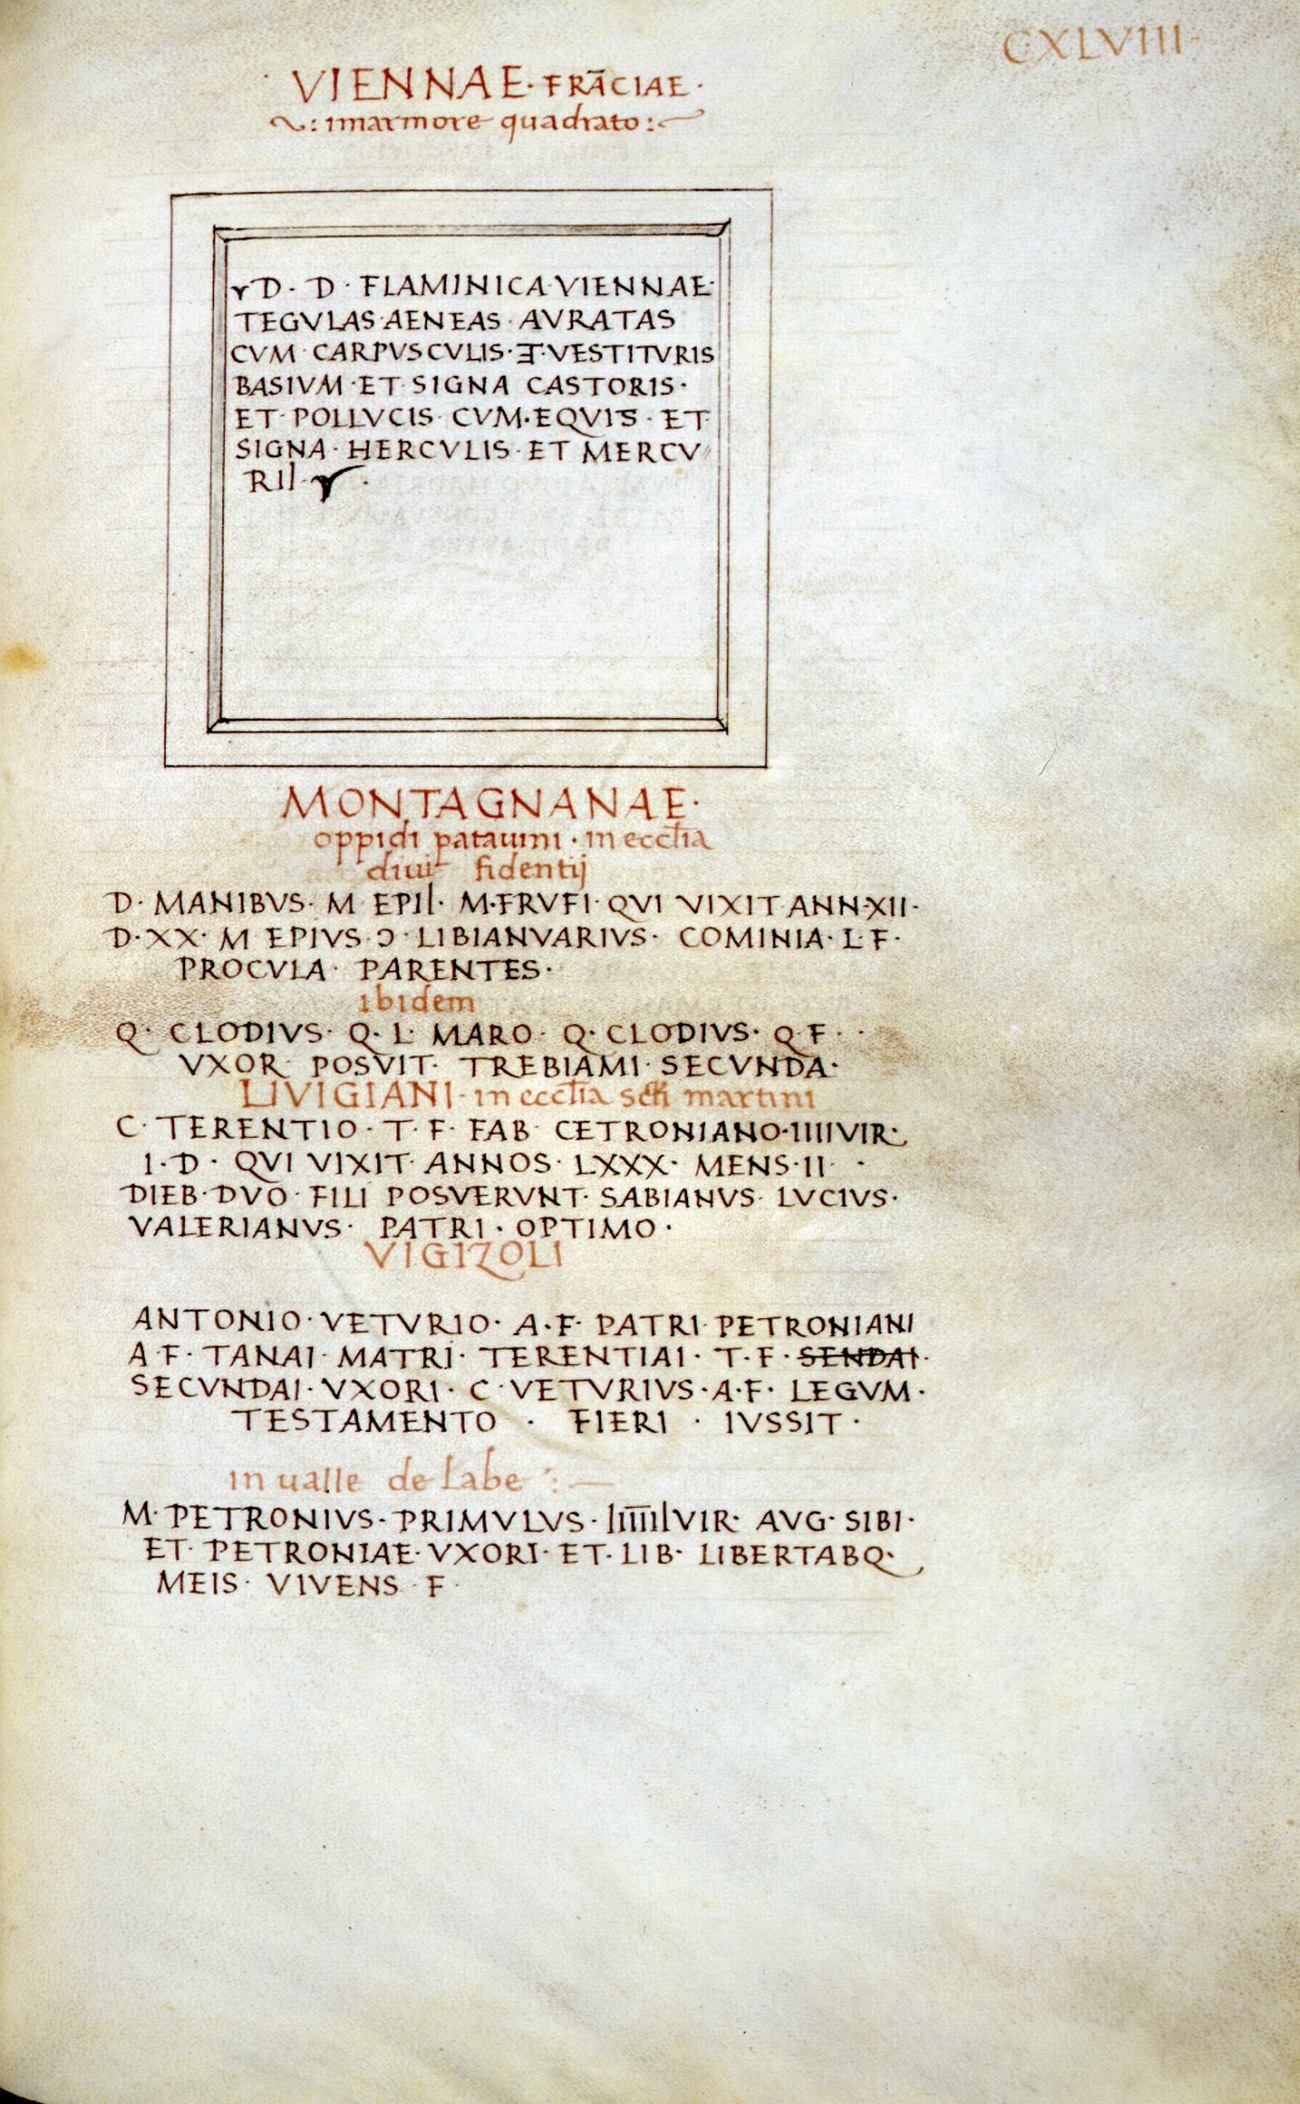 CXLVIII·
VIENNAE·FRĀCIAE·
inmarmore quadrato:
D·D·FLAMINICA·VIENNAE·
TEGVLAS·AENEAS·AVRATAS
CVM·CARPVSCVLIS·ET·VESTITVRIS
BASIVM·ET·SIGNA CASTORIS·
ET·POLLVCIS·CVM·EQVIS·ET
SIGNA·HERCVLIS·ET MERCV
RII·
MONTAGNANAE·
oppidi patauini·in eccl̄ia
diui fidentij
D·MANIBVS·M EPII·M·F RVFI·QVI VIXIT ANN·XII·
D·XX·M EPIVS·Ɔ·LIBIANVARIVS·COMINIA·L·F·
PROCVLA·PARENTES·
ibidem
Q·CLODIVS·Q·L·MARO·Q·CLODIVS·Q·F·
VXOR POSVIT·TREBIAMI·SECVNDA·
LIVIGIANI·in eccl̄ia sc̄ti martini
C·TERENTIO·T·F·FAB CETRONIANO·IIIIVIR·
I·D·QVI VIXIT·ANNOS·LXXX·MENS·II·
DIEB·DVO·FILI POSVERVNT·SABIANVS·LVCIVS·
VALERIANVS·PATRI·OPTIMO·
VIGIZOLI
ANTONIO·VETVRIO·A·F·PATRI·PETRONIANI
A·F·TANAI·MATRI·TERENTIAI·T·F·SENDAI·
SECVNDAI·VXORI·C·VETVRIVS·A·F·LEGVM·
TESTAMENTO·FIERI·IVSSIT·
in ualle de Labe:—
M·PETRONIVS·PRIMVLVS·IIIIIIVIR·AVG·SIBI·
ET·PETRONIAE·VXORI·ET·LIB·LIBERTABQ·
MEIS·VIVENS·F·